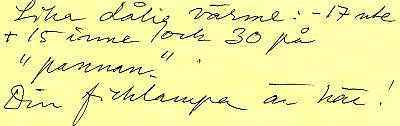 Lika dålig värme: -17 ute
+ 15 inne och 30 på
"pannan".
Din ficklampa är här!